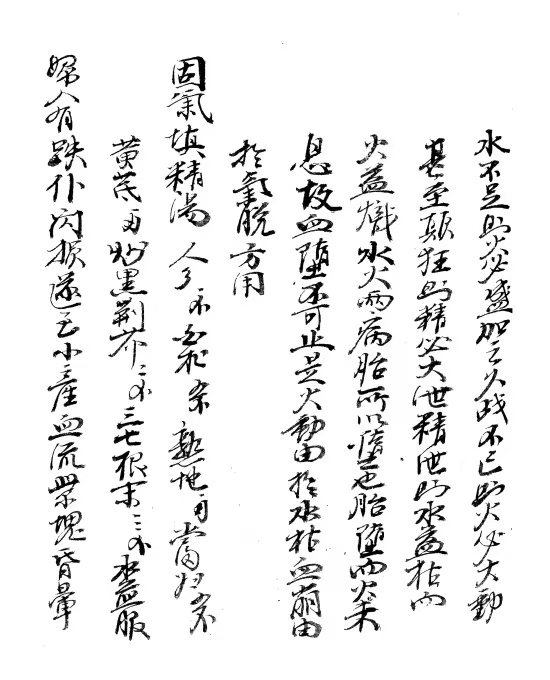 水不足則火必盛加之久战不已則火必大動
甚至顛狂則精必大泄精泄則水益枯而
火益熾水火兩病胎所以墮也胎墮而火未
息故血墮不可止是火動由於水枯血崩由
於氣脱方用
固氣填精湯 人參 白朮 熟地 當归
黄芪 炒黑荆芥 三七根末 水煎服
婦人有跌仆闪损遂至小產血流紫塊昏暈